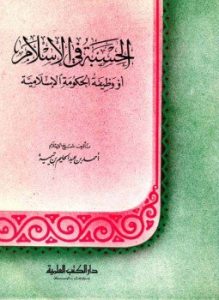 الحسبة في الإسلام
أو وظيفة الحكومة الإسلامية
أحمد بن عبد الحليم بن تيمية
دار الكتب العلمية